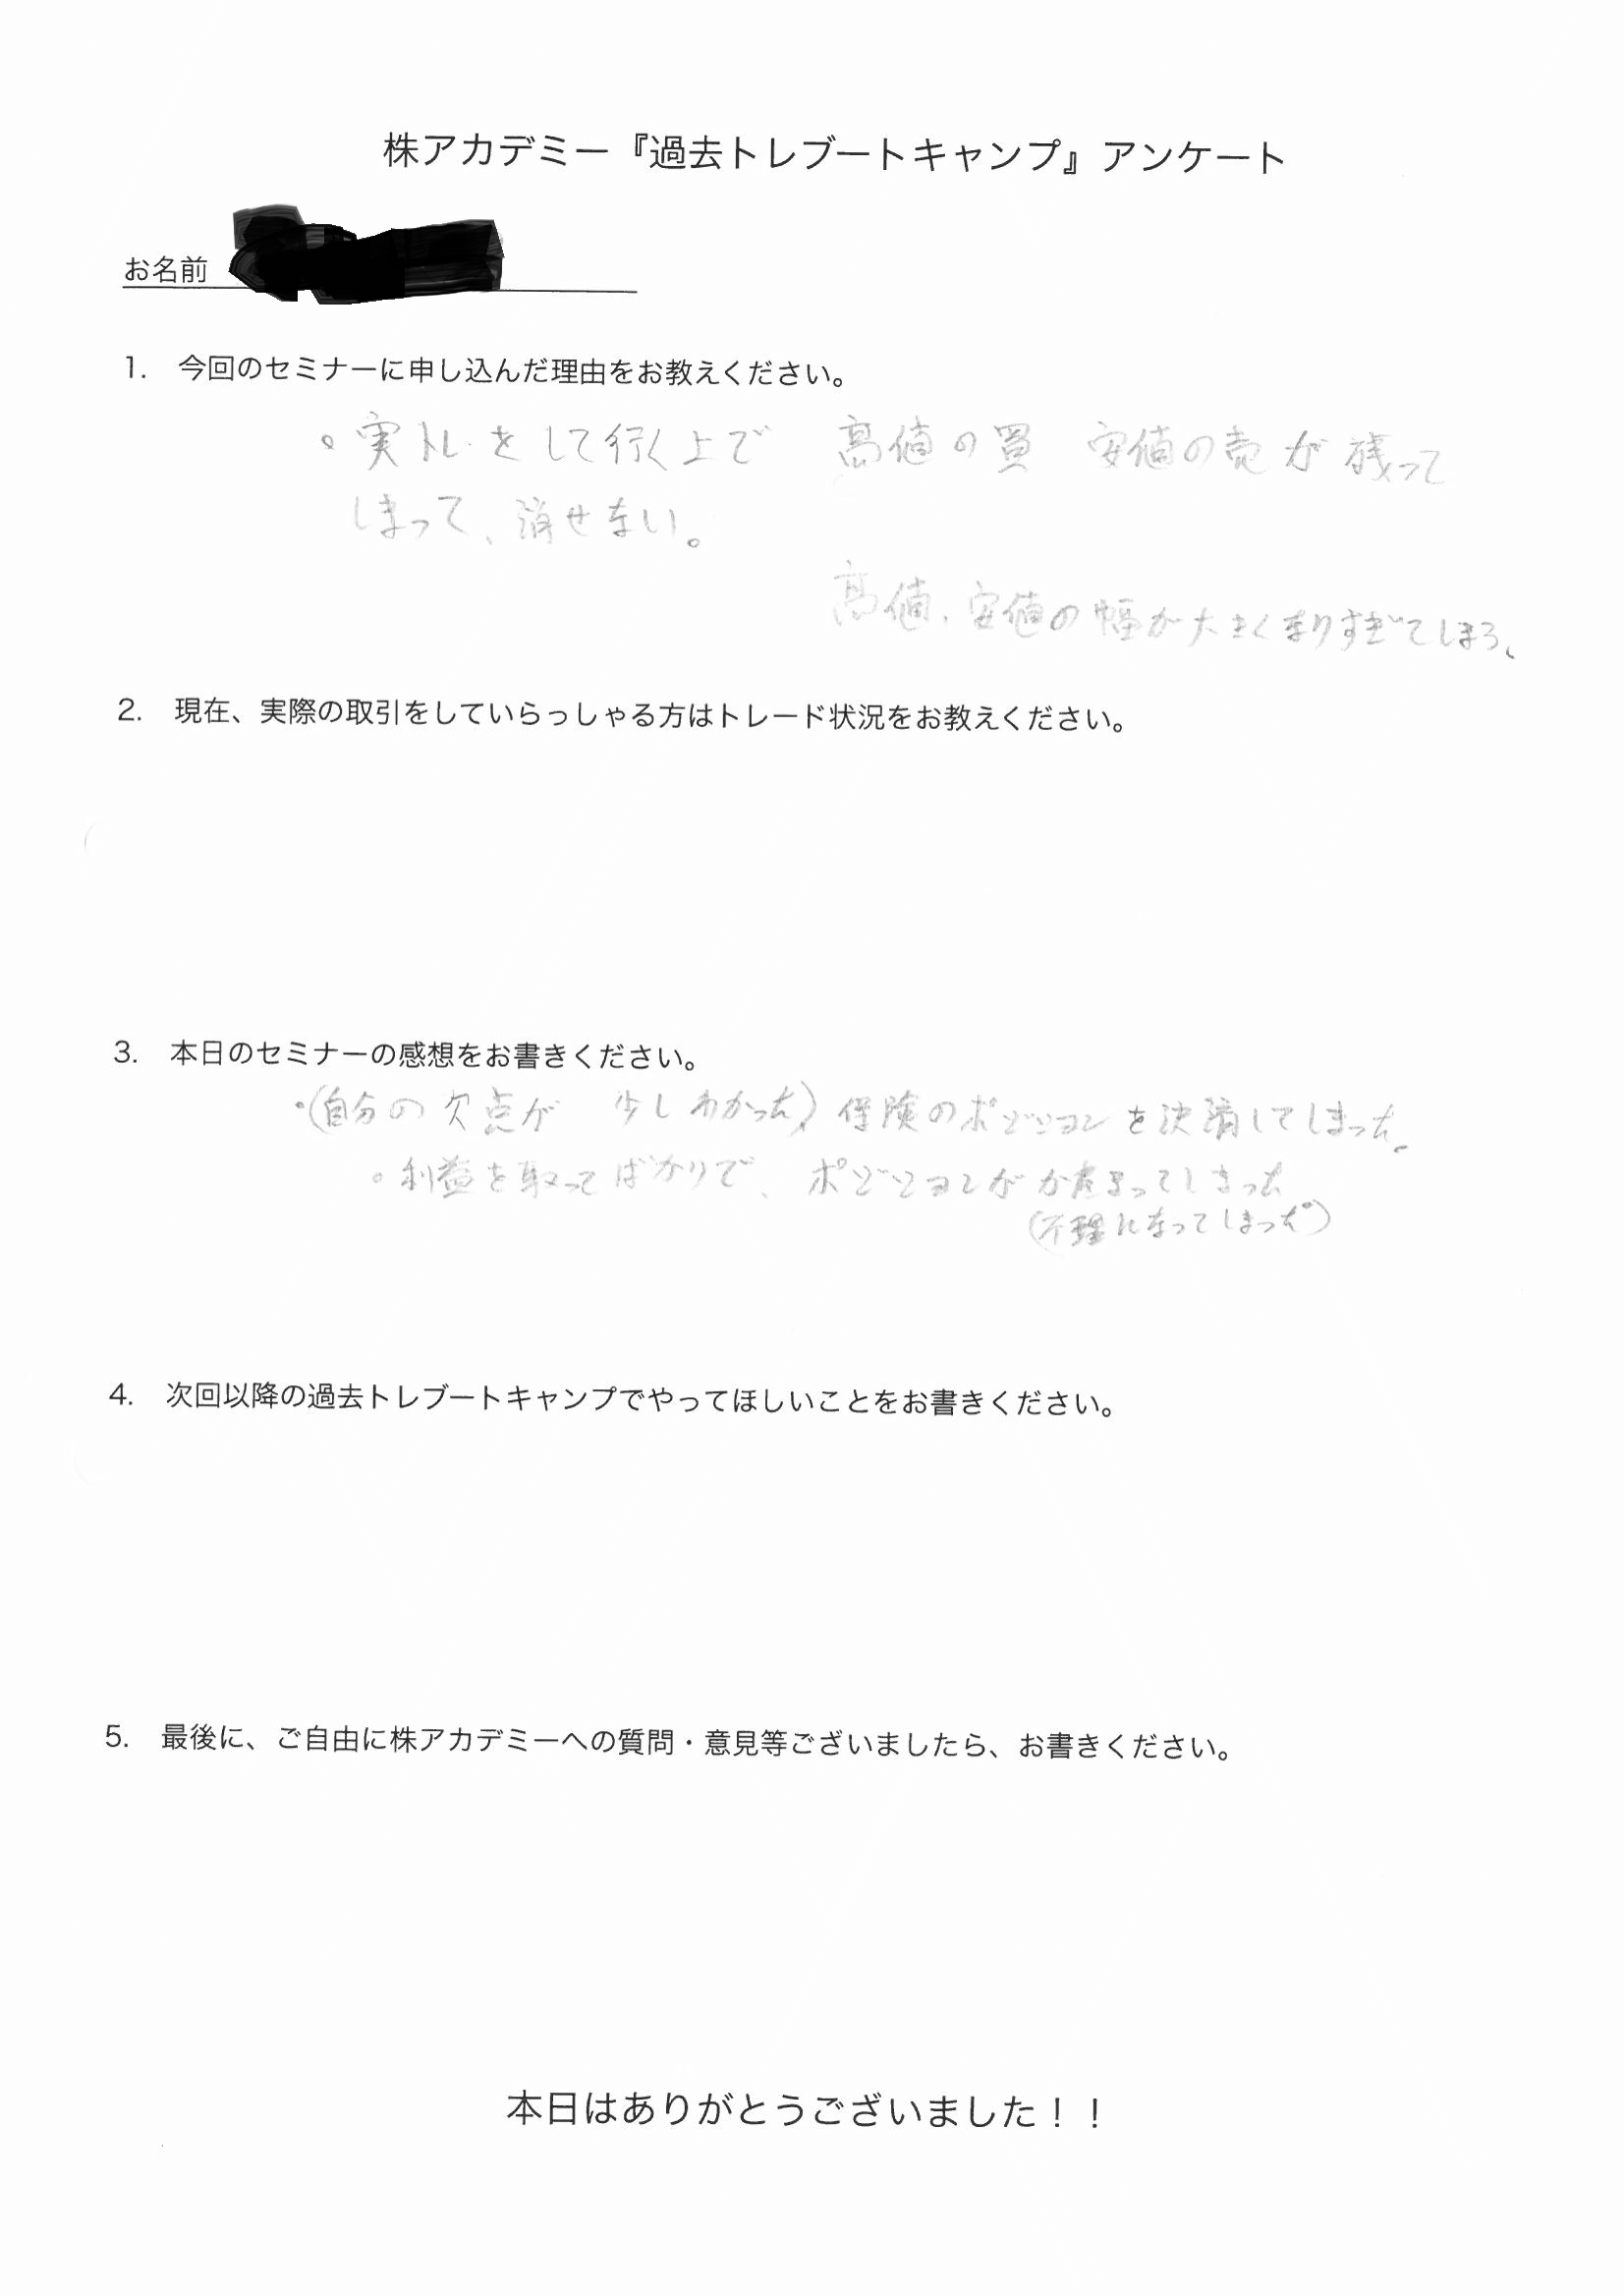 株アカデミー『過去トレブートキャンプ』アンケート
お名前
1. 今回のセミナーに申し込んだ理由をお教えください。
。実トレをして行く上で 高値の買 安値の売が残って
しまって、消せない。
高値、安値の幅が大きくなりすぎてしまう、
2. 現在、実際の取引をしていらっしゃる方はトレード状況をお教えください。
3. 本日のセミナーの感想をお書きください。
・(自分の欠点が 少しわかった) 保険のポジションを決済してしまった。
。利益を取ってばかりで、ポジションが てしまった
(になってしまった)
4. 次回以降の過去トレブートキャンプでやってほしいことをお書きください。
5. 最後に、ご自由に株アカデミーへの質問・意見等ございましたら、お書きください。
本日はありがとうございました！！